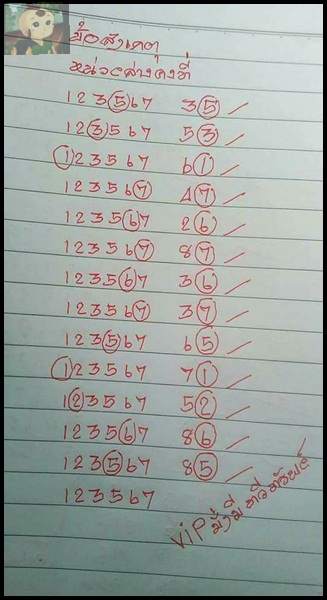 ข้อสังเกตุ
หน่วยล่างคงที่
123567 35 /
123567 53 /
123567 61 /
123567 47 /
123567 26 /
123567 87 /
123567 36 /
123567 37 /
123567 65 /
123567 71 /
123567 52 /
123567 86 /
123567 85 /
123567
VIP มั่งมี ทวีทรัพย์